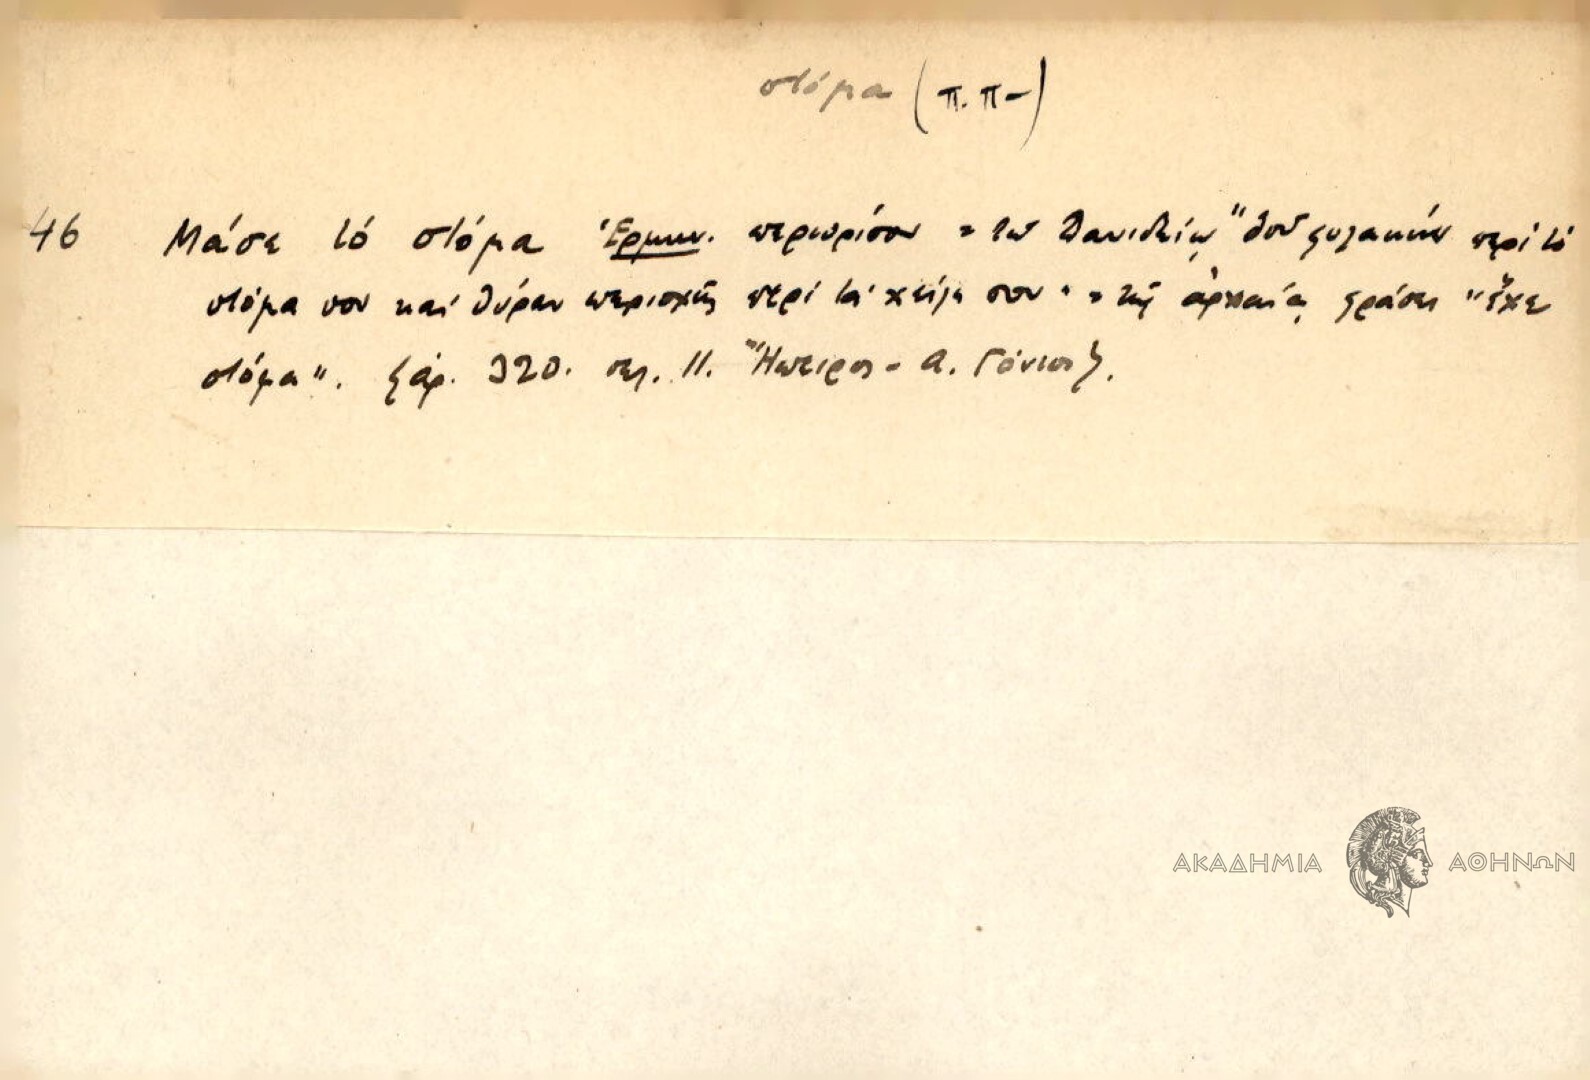 στόμα (π. π-)
46 Μάσε τό στόμα Ἑρμην. περιορίσου = τῷ Δαυιδείῳ "θοῦ φυλακήν περί τό
στόμα σου καί θύραν περιοχῆς περί τά χείλη σου" = τῇ ἀρχαίᾳ φράσει "ἔχε
στόμα". ἀρ. 320. σελ. 11. Ἤπειρος - Α. Γόνιος.
ΑΚΑΔΗΜΙΑ ΑΘΗΝΩΝ